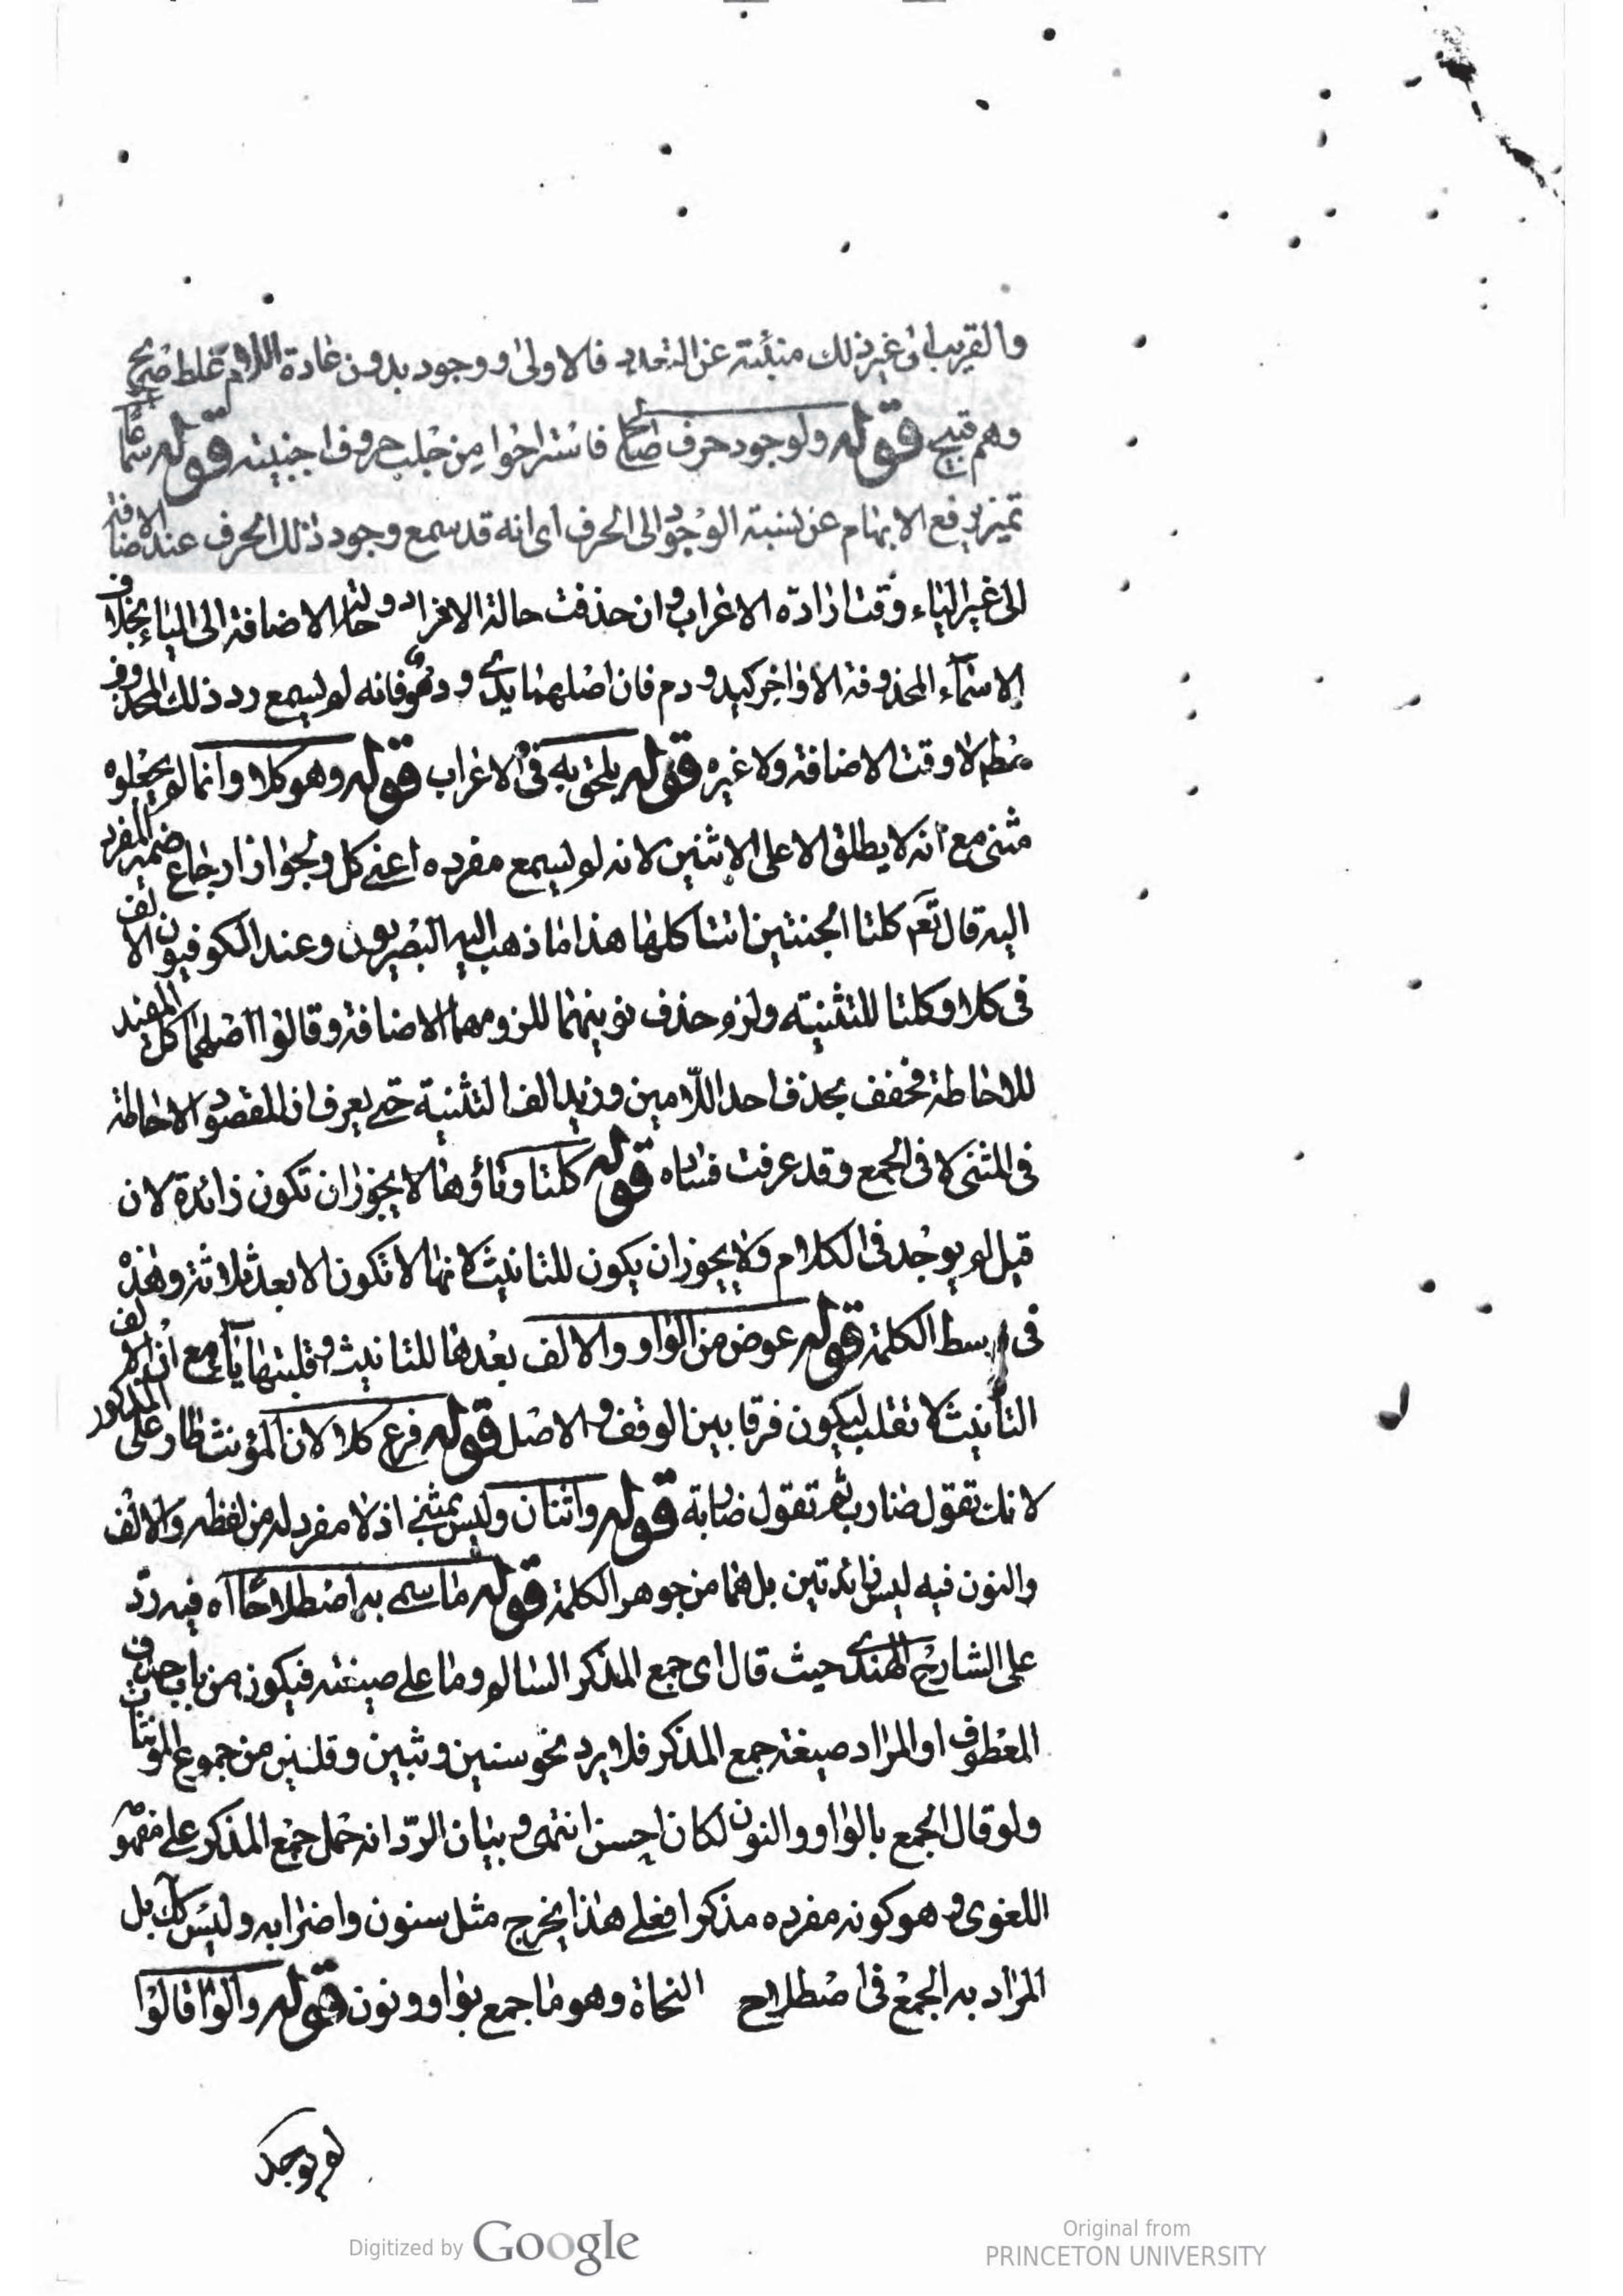 والقريب اى غير ذلك منبئة عن التعدد فالاولى او وجود بدون عادة اللام غلط صريح
وهم قبيح قوله ولوجود حرف صالح فاستراحوا من جلب حروف اجنبية قوله سماعا
تميز يرفع الابهام عن نسبة الوجود الى الحرف اى انه قد سمع وجود ذلك الحرف عند الاضافة
الى غير الياء وقت ارادة الاعراب وان حذفت حالة الافراد وحالة الاضافة الى الياء بخلاف
الاسماء المحذوفة الاواخر كيد ودم فان اصلهما يدى ودمو فانه لم يسمع رد ذلك المحذوف
مط لا وقت الاضافة ولا غيره قوله يلحق به فى الاعراب قوله وهو كلا وانما لم يجعلوه
مثنى مع انه لا يطلق الا على الاثنين لانه لم يسمع مفرده اعنى كل ولجواز ارجاع ضمير المفرد
اليه قال تعم كلتا الجنتين اتت اكلها هذا ما ذهب اليه البصريون وعند الكوفيون الالف
فى كلا وكلتا للتثنية ولزم حذف نونيهما للزومهما الاضافة وقالوا اصلهما كل المفيد
للاحاطة فخفف بحذف احد اللامين وزيد الف التثنية حتى يعرف ان المقصود الاحاطة
فى المثنى لا فى الجمع وقد عرفت فساده قوله كلتا وتاؤها لا يجوز ان تكون زائدة لان
قبل لم يوجد فى الكلام ولا يجوز ان يكون للتانيث لانها لا تكون الا بعد ثلاثة وهذه
فى وسط الكلمة قوله عوض من الواو والالف بعدها للتانيث وقلبتها ياء مع ان الالف
التأنيث لا تقلب ليكون فرقا بين الوقف والاصل قوله فرع كلا لان المؤنث طار على المذكور
لانك تقول ضارب ثم تقول ضاربة قوله واثنان وليس بمثنى اذ لا مفرد له من لفظه والالف
والنون فيه ليس زائدتين بل هما من جوهر الكلمة قوله ما سمى به اصطلاحا آه فيه ردّ
على الشارح الهندى حيث قال اى جمع المذكر السالم وما على صيغته فيكون من باب حذف
المعطوف او المراد صيغة جمع المذكر فلا يرد نحو سنين وثبين وقلنين من جموع المونثات
ولو قال الجمع بالواو والنون لكان احسن انتهى وبيان الردّ انه حمل جمع المذكر على مفهو
اللغوى وهو كونه مفرده مذكرا فعلى هذا يخرج مثل سنون واضرابه وليس كك بل
المراد به الجمع فى اصطلاح النحاة وهو ما جمع بواو ونون قوله والوا قالوا
لم يوجد
Digitized by Google
Original from
PRINCETON UNIVERSITY